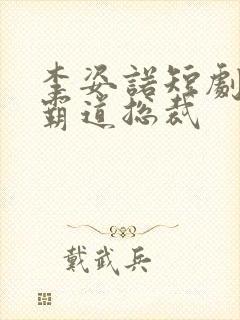 李姿諾短劇
霸道捴裁
戴武兵